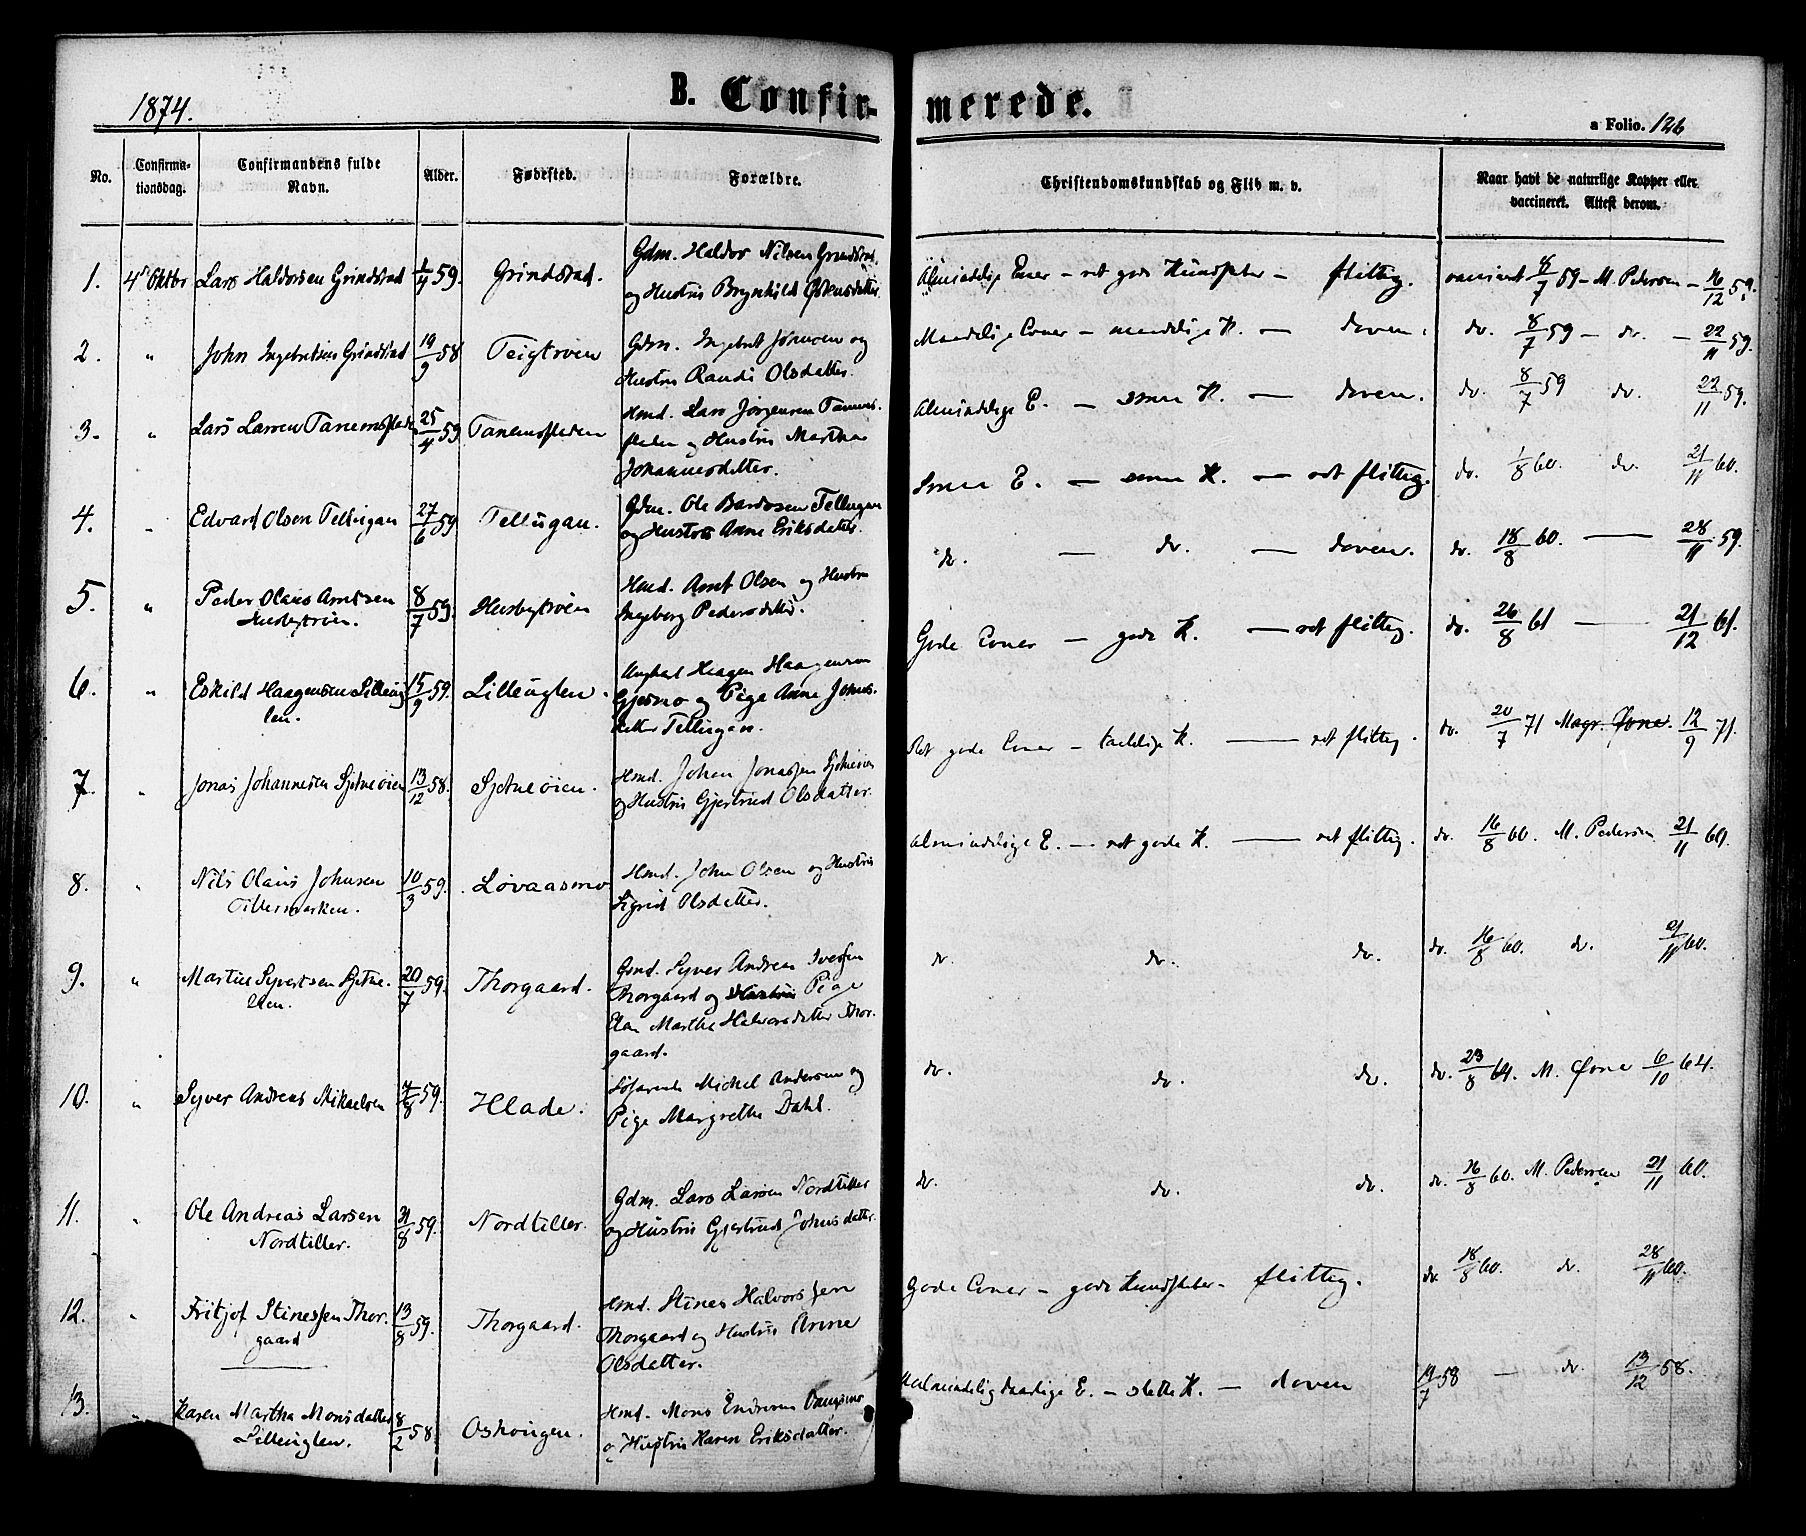 1874.
B. Confir-
merede.
a Folio. 126
No.
Confirma-
tionsdag.
Confirmandens fulde
Navn.
Alder.
Fødested.
Forældre.
Christendomskundskab og Flid m. v.
Naar havt de naturlige Kopper eller
vaccineret. Attest derom.
1. 4de Oktbr Lars Haldorsen Grindstad 1/4 59. Grindstad.
Gdm. Haldor Nilsen Grindstad
og Hustru Brynhild
Almindelige Evner – ret gode Kundskber – flittig.
vaccinert 8/7 59 – M. Pedersen – 16/12 59.
2. " John Ingebrigtsen Grindstad 19/9 58 Teigtrøen
Gdm. Ingebrt Johnsen og
Hustru Randi Olsdatter.
Maadelige Evner – maadelige K. – doven.
do. 8/7 59 – do. – 22/11 59.
3. " Lars Larsen Tanemsfleden 25/4 59 Tanemsfleden
Hmd. Lars Jørgensen Tanems-
fleden og Hustru Martha
Johannesdatter.
Almindelige E. – smaa K. – doven.
do. 8/7 59 do. 22/11 59.
4. " Edvard Olsen Tellugan 27/6 59 Tellugan.
Gdm. Ole Bardosen Tellugan
og Hustru Anne Eriksdatter.
Smaa E. – smaa K. – ret flittig.
do. 1/8 60. do. 21/11 60.
5. " Peder Olaus Arntsen
Husbytrøen. 8/7 59. Husbytrøen
Hmd. Arnt Olsen og Hustru
Ingeborg Pedersdatter.
do. – do. – doven.
do. 18/8 60. – 28/11 59.
6. " Eskild Haagensen Lilleug
len. 15/9 59. Lilleuglen.
Ungkarl Haagen Haagensen
Gjesmo og Pige Anne Johns-
datter Tellugan.
Gode Evner – gode K. – ret flittig.
do. 26/8 61 – 21/12 61.
7. " Jonas Johannesen Sjetneøien 13/12 58. Sjetneøien.
Hmd. Johan Jonassen Sjetneøien
og Hustru Gjertrud Olsdatter.
Ret gode Evner – taalelige K. – ret flittig.
do. 20/7 71 Magr. Øvne. 12/9 71.
8. " Nils Olaus Johnsen
Tillermarken. 10/3 59. Løvaasmo
Hmd. John Olsen og Hustru
Sigrid Olsdatter.
Almindelige E. – ret gode K. – ret flittig.
do. 16/8 60. M. Pedersen 21/11 60.
9. " Martin Syvertsen Sjetne-
20/7 59. Thorgaard.
Gmd. Syver Andreas Iversen
Thorgaard og Hustru Pige
Elen Martha Halvorsdatter Thor-
gaard.
do. do. do.
do. 16/8 60. do. 21/11 60.
10. " Syver Andreas Mikaelsen 7/8 59. Hlade.
Søfarende Michel Andersen og
Pige Margrethe Dahl.
do. do. do.
do. 23/8 64. M. Øvne 6/10 64.
11. " Ole Andreas Larsen
Nordtiller. 31/8 59. Nordtiller.
Gdm. Lars Larsen Nordtiller
og Hustru Gjertrud Johnsdatter.
do. do. do.
do. 16/8 60. M. Pedersen 21/11 60.
12. " Fritjof Stinessen Thor-
gaard 13/8 59. Thorgaard.
Hmd. Stines Halvorssen
Thorgaard og Hustru Anne
Olsdatter.
Gode Evner – gode Kundskber – flittig.
do. 18/8 60. do. 28/11 60.
13. " Karen Martha Monsdatter
Lilleuglen. 8/2 58. Oshougen.
Hmd. Mons Endresen
og Hustru Karen Eriksdatter.
Ualmindelig daarlige E. – slette K. – doven
19/7 58 – do. 13/12 58.